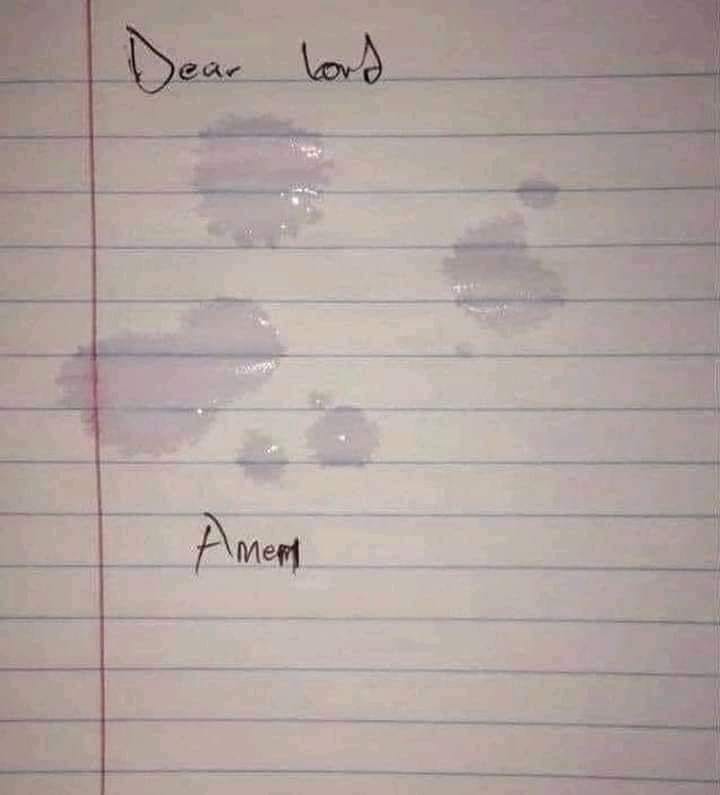 Dear Lord
Amen